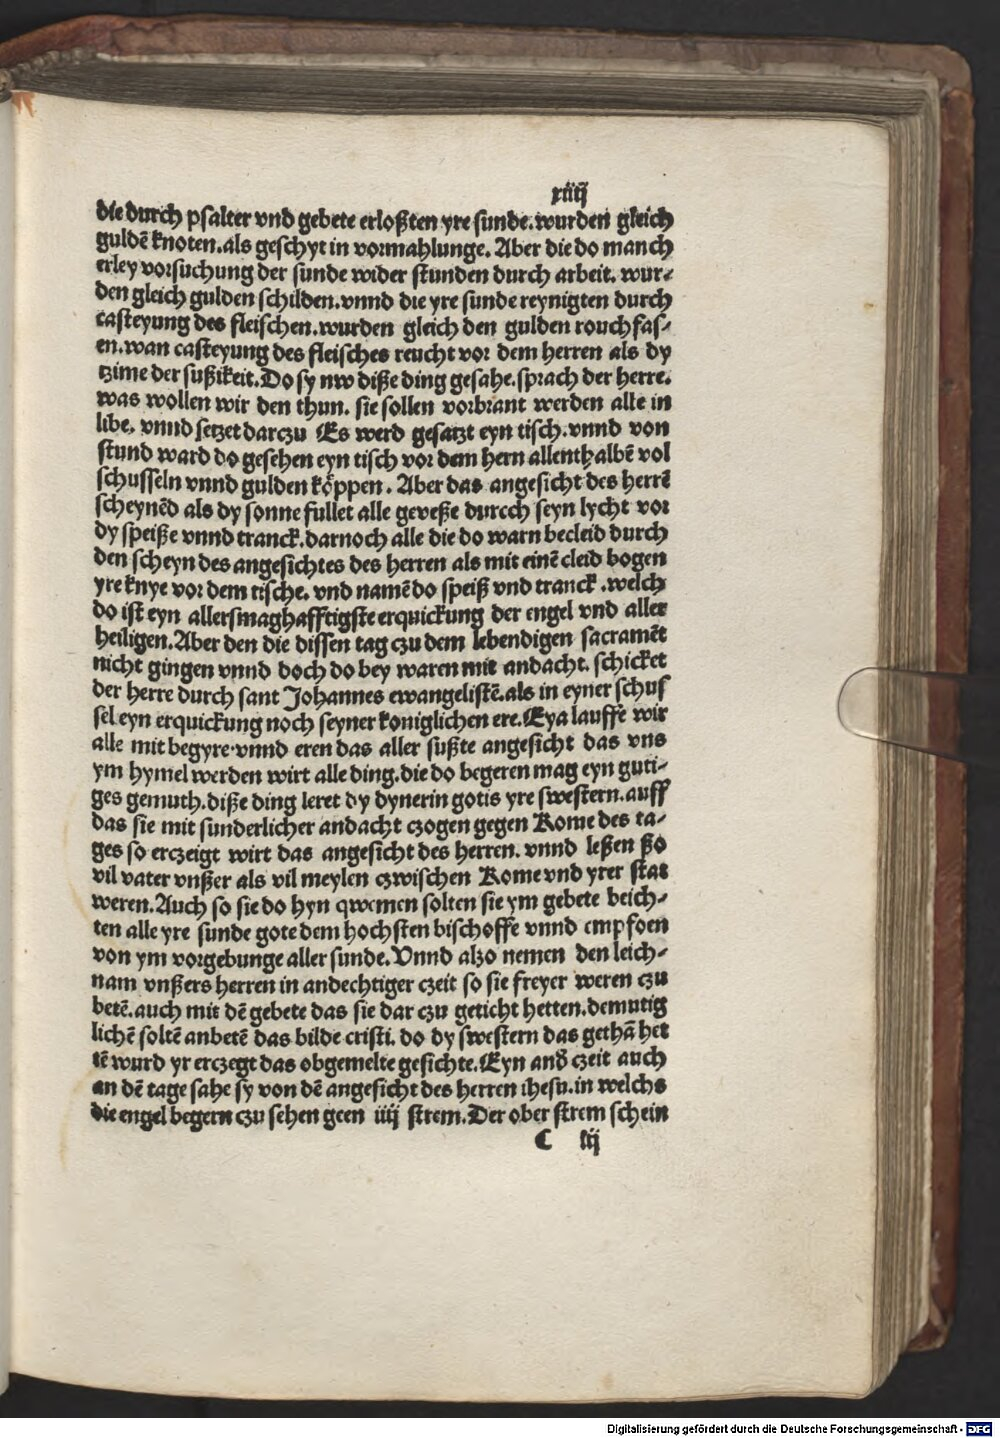 xiiij
die durch psalter vnd gebete erloßten yre sunde. wurden gleich
guldē knoten. als geschyt in vormahlunge. Aber die do manch
erley vorsuchung der sunde wider stunden durch arbeit. wur-
den gleich gulden schilden. vnnd die yre sunde reynigten durch
casteyung des fleischen. wurden gleich den gulden rouchfas-
en. wan casteyung des fleisches reucht vor dem herren als dy
tzime der sußikeit. Do sy nw diße ding gesahe. sprach der herre.
was wollen wir den thun. sie sollen vorbrant werden alle in
libe. vnnd setzet darczu Es werd gesatzt eyn tisch. vnnd von
stund ward do gesehen eyn tisch vor dem hern allenthalbē vol
schusseln vnnd gulden köppen. Aber das angesicht des herrē
scheynēd als dy sonne fullet alle geveße durcch seyn lycht vor
dy speiße vnnd tranck. darnoch alle die do warn becleid durch
den scheyn des angesichtes des herren als mit einē cleid bogen
yre knye vor dem tische. vnd namē do speiß vnd tranck. welch
do ist eyn allersmaghafftigste erquickung der engel vnd aller
heiligen. Aber den die dissen tag czu dem lebendigen sacramēt
nicht gingen vnnd doch do bey waren mit andacht. schicket
der herre durch sant Johannes ewangelistē. als in eyner schus
sel eyn erquickung noch seyner koniglichen ere. Eya lauffe wir
alle mit begyre. vnnd eren das aller sußte angesicht das vns
ym hymel werden wirt alle ding. die do begeren mag eyn guti-
ges gemuth. diße ding leret dy dynerin gotis yre swestern. auff
das sie mit sunderlicher andacht czogen gegen Rome des ta-
ges so erczeigt wirt das angesicht des herren. vnnd leßen ßo
vil vater vnßer als vil meylen czwischen Rome vnd yrer stat
weren. Auch so sie do hyn qwemen solten sie ym gebete beich-
ten alle yre sunde gote dem hochsten bischoffe vnnd empfoen
von ym vorgebunge aller sunde. Vnnd alzo nemen den leich-
nam vnßers herren in andechtiger czeit so sie freyer weren czu
betē. auch mit dē gebete das sie dar czu geticht hetten. demutig
lichē soltē anbetē das bilde cristi. do dy swestern das gethā het
tē wurd yr erczegt das obgemelte gesichte. Eyn and̄ czeit auch
an dē tage sahe sy von dē angesicht des herren ihesu. in welchs
die engel begern czu sehen geen iiij strem. Der ober strem schein
C iij
Digitalisierung gefördert durch die Deutsche Forschungsgemeinschaft - DFG